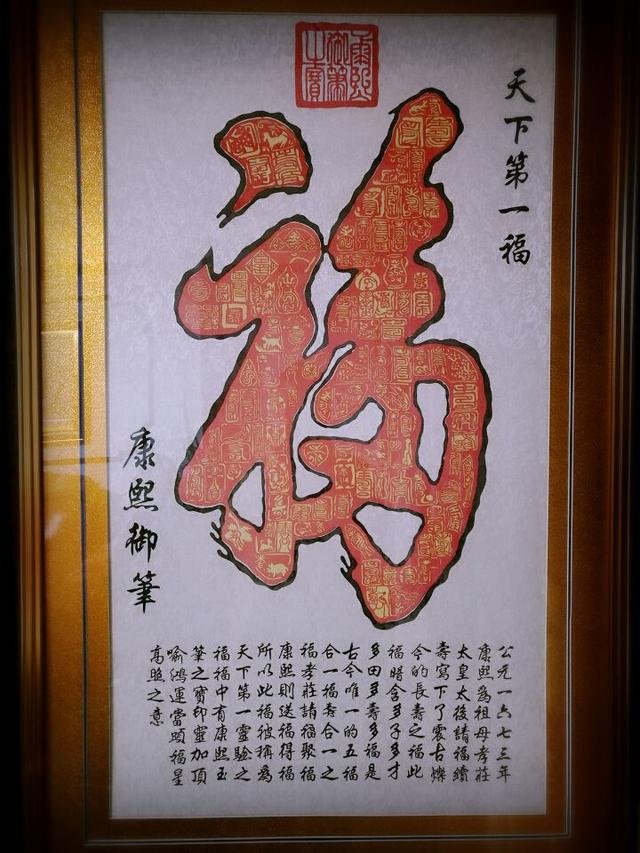 康熙
御筆
之寶
天下第一福
福
康熙御筆
公元一六七三年
康熙為祖母孝莊
太皇太後請福續
壽寫下了震古爍
今的長壽之福此
福暗含多子多才
多田多壽多福是
古今唯一的五福
合一福壽合一之
福孝莊請福聚福
康熙則送福得福
所以此福被稱為
天下第一靈驗之
福福中有康熙玉
筆之寶印靈加頂
喻鴻運當頭福星
高照之意